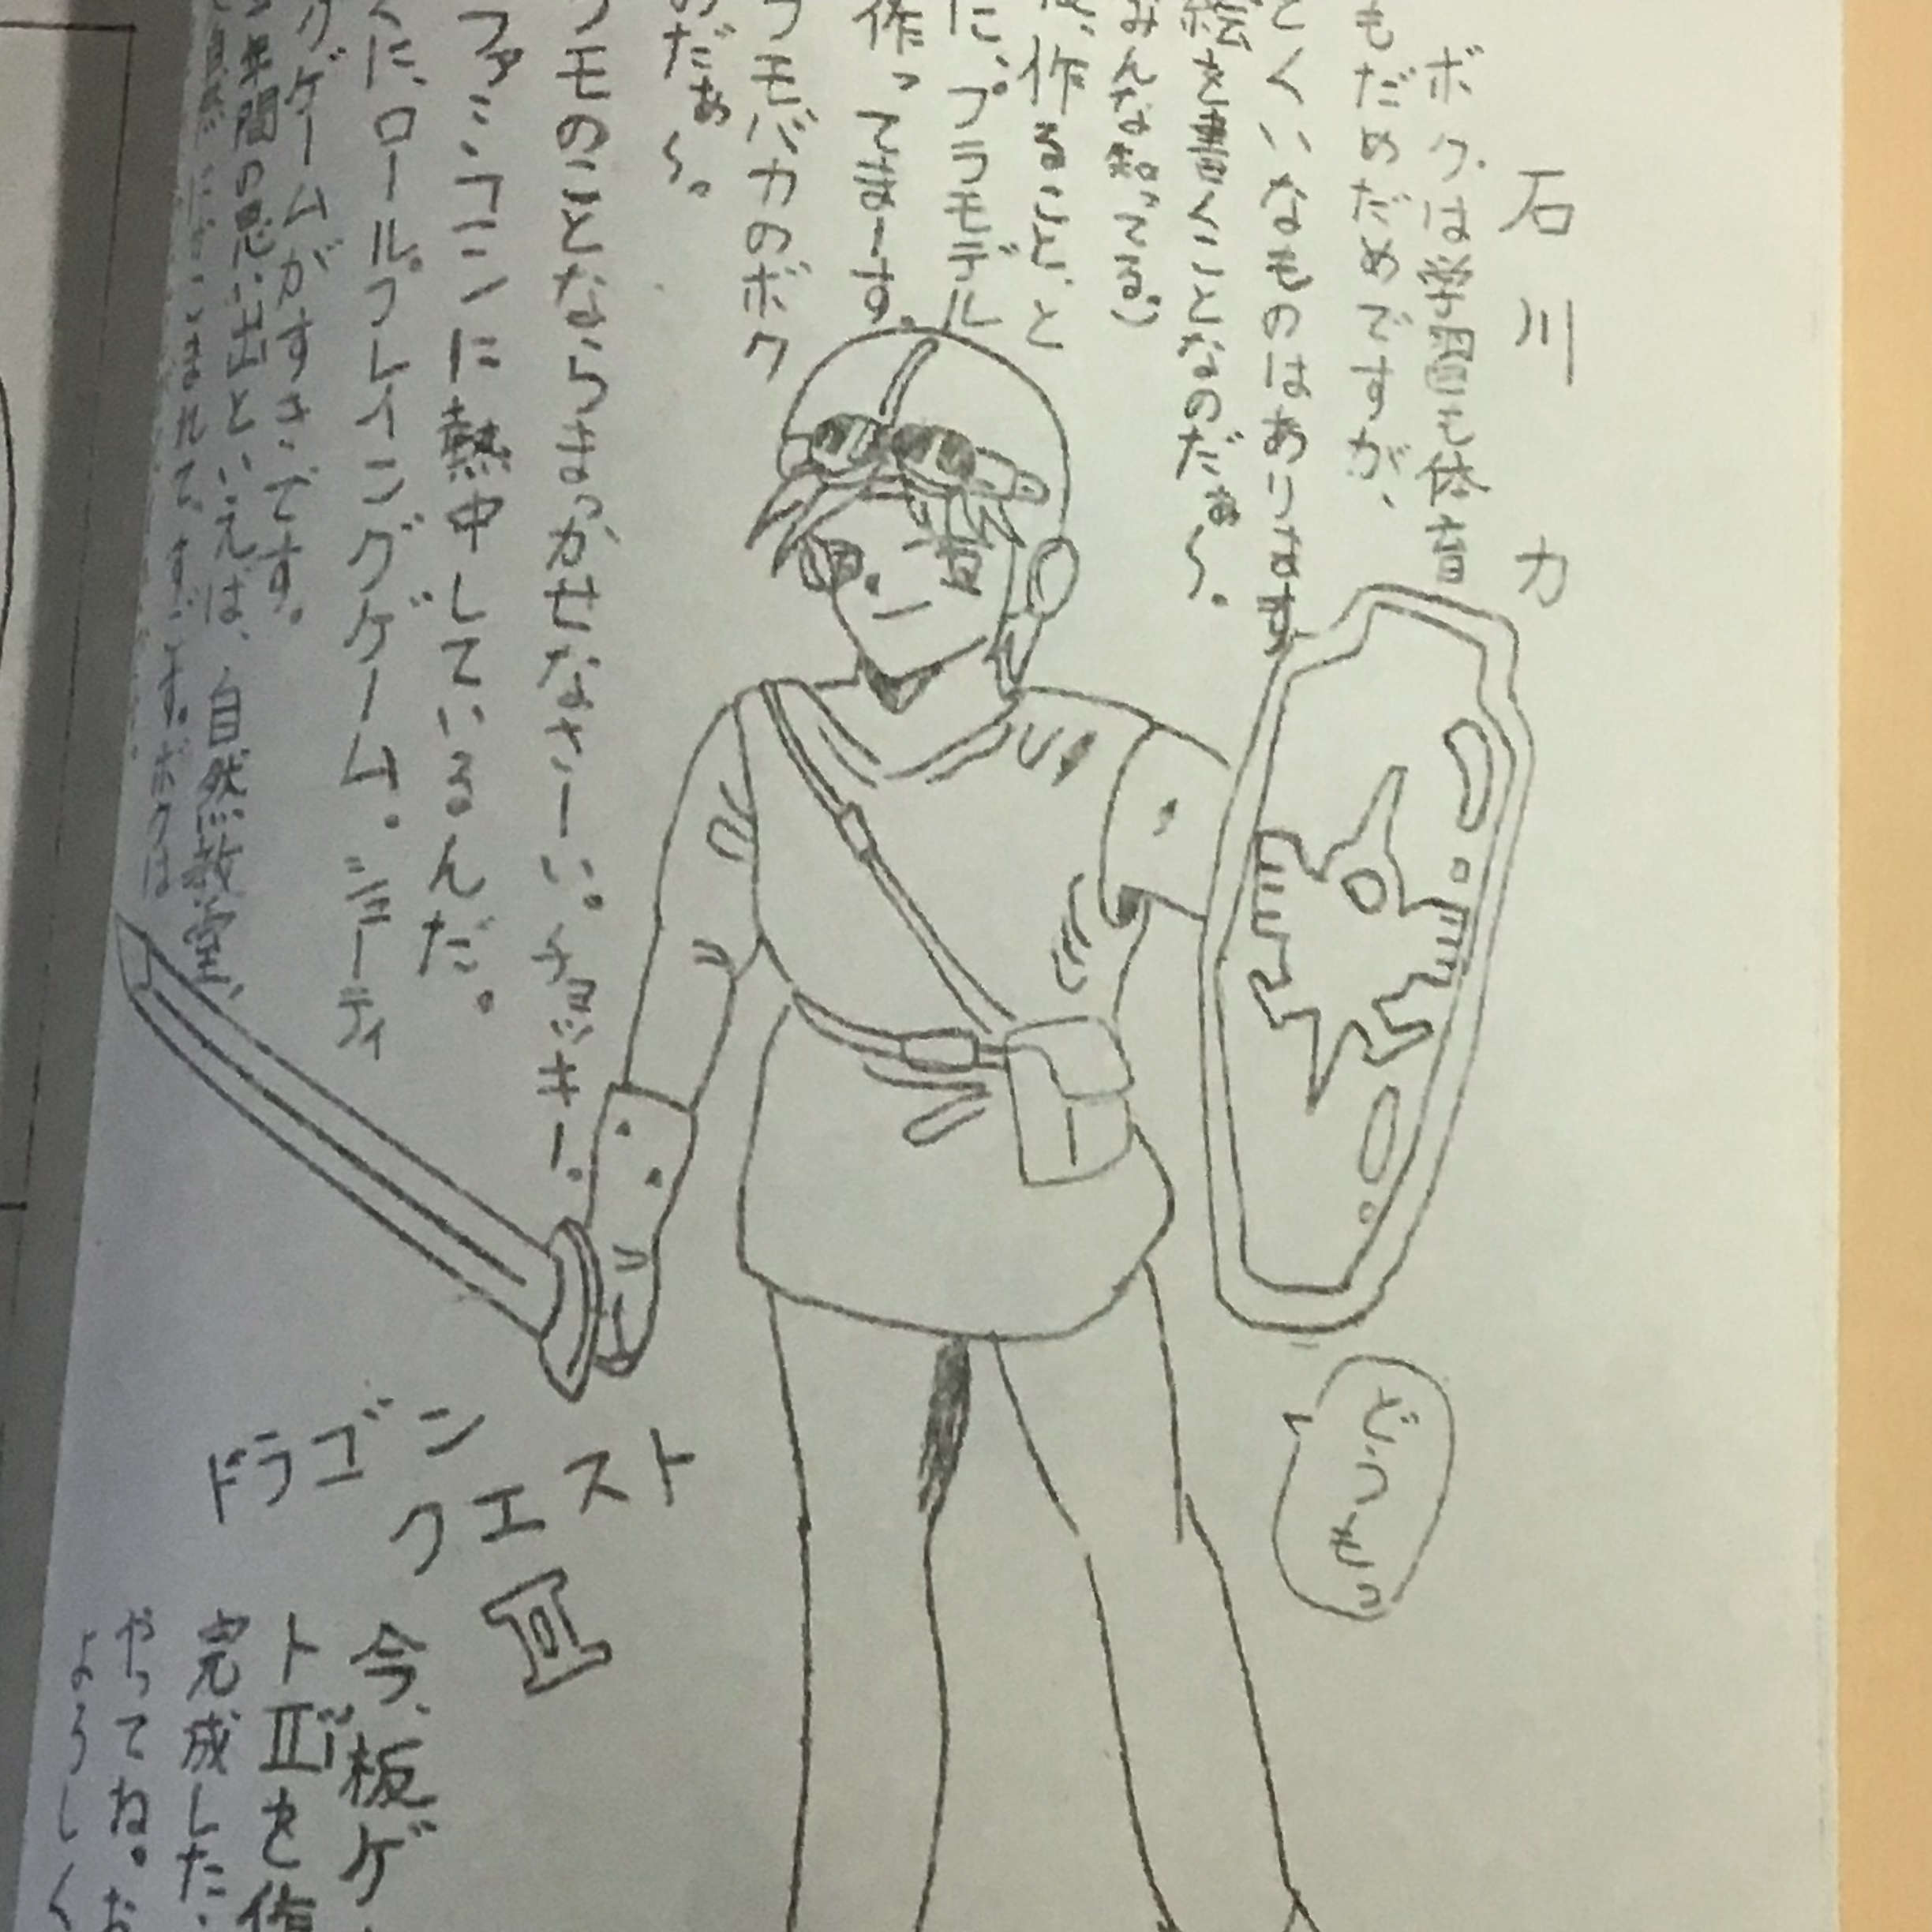 石川 力
ボクは学習も体育
もだめだめですが、
とくいなものはあります
絵を書くことなのだぁ～。
みんな知ってる)
作ること、と
に、プラモデル
作ってまーす。
モバカのボク
のだぁ～。
モのことならまっかせなさーい。チョッキー。
ファミコンに熱中しているんだ。
に、ロールプレイングゲーム。シューティ
グゲームがすきです。
年間の思い出といえば、自然教室、
ボクは
どうもっ
ドラゴン
クエスト
II
今、板ゲ
トIIを作
完成した
やってね。お
よろしく